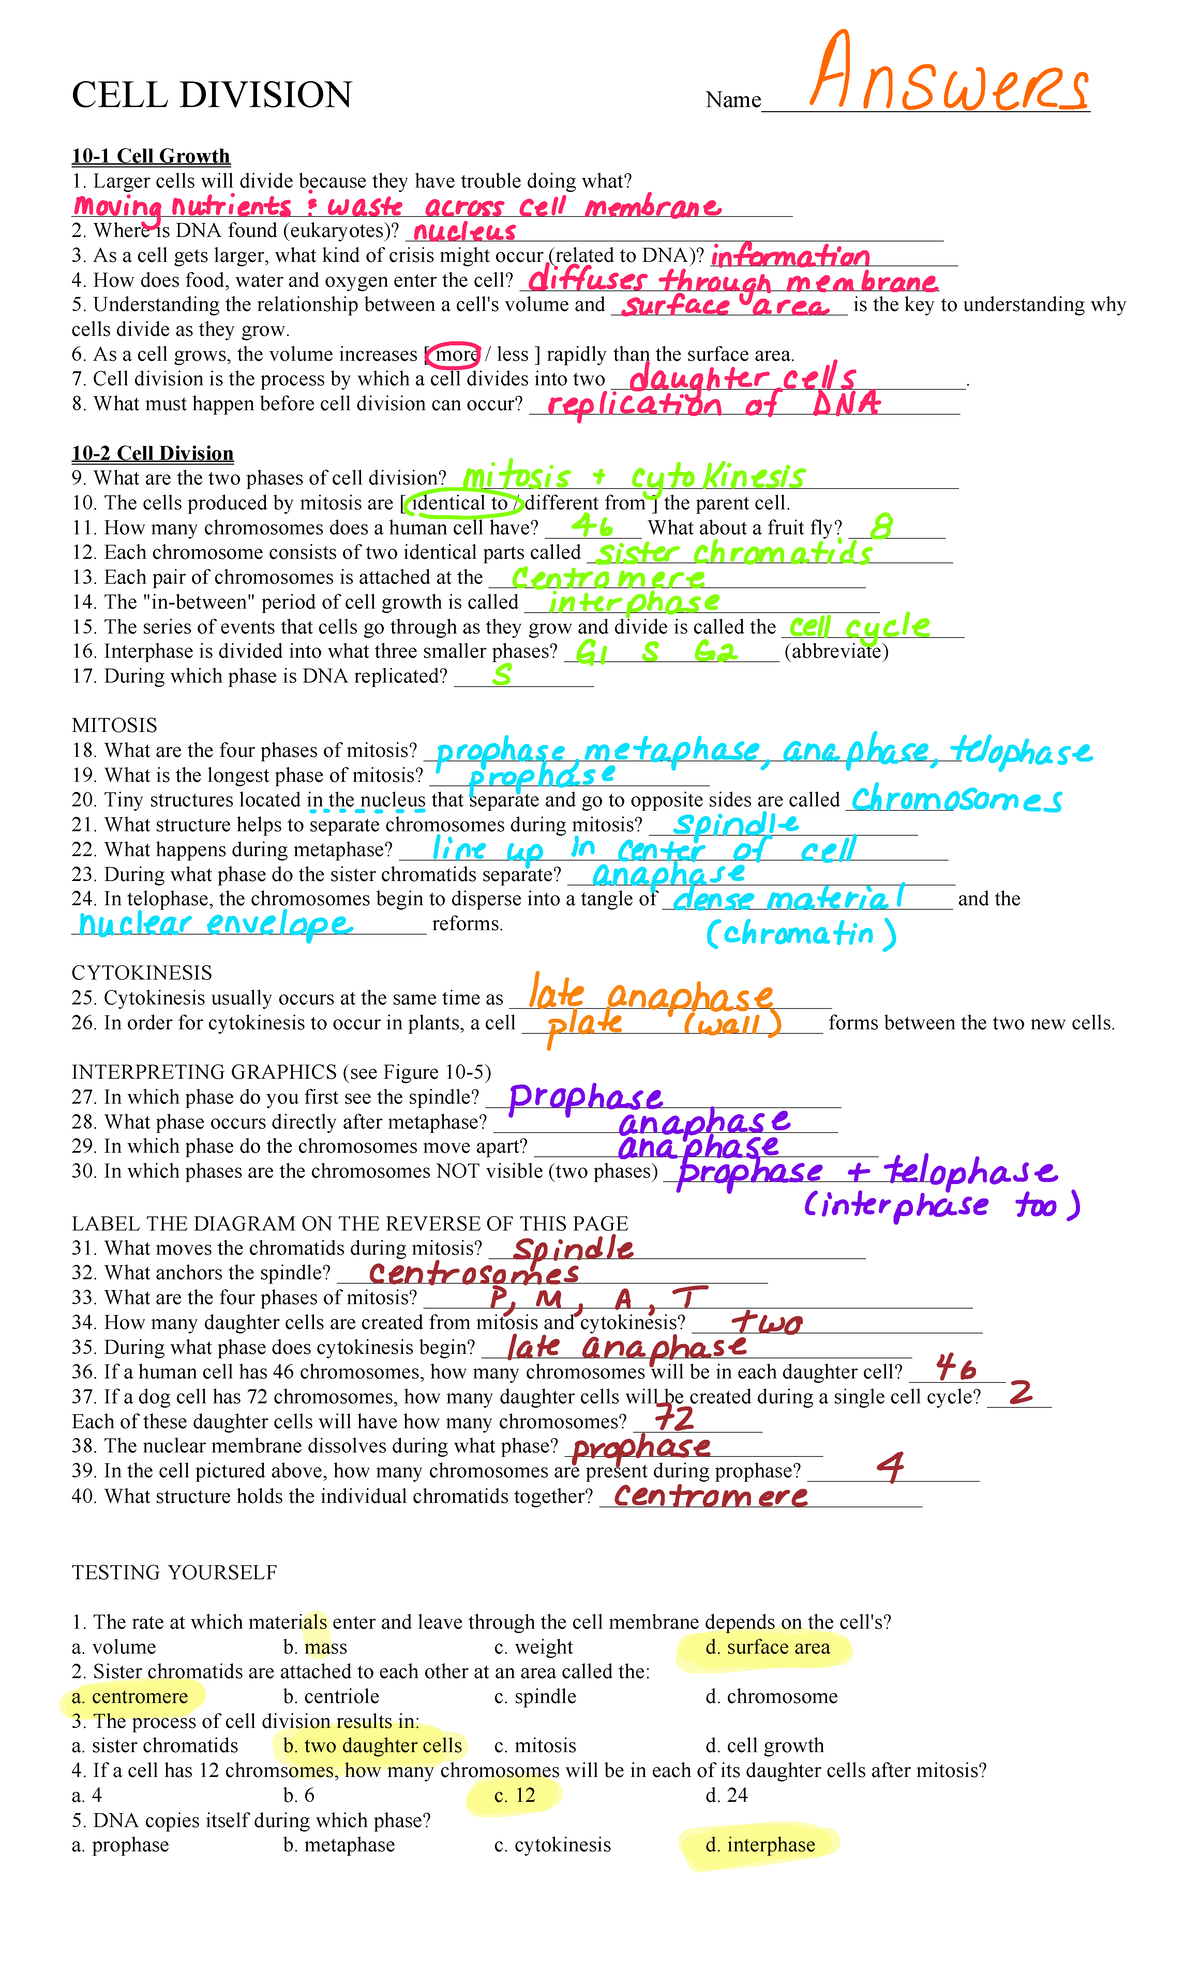 CELL DIVISION Name Answers
10-1 Cell Growth
1. Larger cells will divide because they have trouble doing what?
moving nutrients & waste across cell membrane
2. Where is DNA found (eukaryotes)? nucleus
3. As a cell gets larger, what kind of crisis might occur (related to DNA)? information
4. How does food, water and oxygen enter the cell? diffuses through membrane
5. Understanding the relationship between a cell's volume and surface area is the key to understanding why
cells divide as they grow.
6. As a cell grows, the volume increases [ more / less ] rapidly than the surface area.
7. Cell division is the process by which a cell divides into two daughter cells.
8. What must happen before cell division can occur? replication of DNA
10-2 Cell Division
9. What are the two phases of cell division? mitosis + cytokinesis
10. The cells produced by mitosis are [ identical to / different from ] the parent cell.
11. How many chromosomes does a human cell have? 46 What about a fruit fly? 8
12. Each chromosome consists of two identical parts called sister chromatids
13. Each pair of chromosomes is attached at the centromere
14. The "in-between" period of cell growth is called interphase
15. The series of events that cells go through as they grow and divide is called the cell cycle
16. Interphase is divided into what three smaller phases? G1 S G2 (abbreviate)
17. During which phase is DNA replicated? S
MITOSIS
18. What are the four phases of mitosis? prophase, metaphase, anaphase, telophase
19. What is the longest phase of mitosis? prophase
20. Tiny structures located in the nucleus that separate and go to opposite sides are called chromosomes
21. What structure helps to separate chromosomes during mitosis? spindle
22. What happens during metaphase? line up in center of cell
23. During what phase do the sister chromatids separate? anaphase
24. In telophase, the chromosomes begin to disperse into a tangle of dense material and the
nuclear envelope reforms. (chromatin)
CYTOKINESIS
25. Cytokinesis usually occurs at the same time as late anaphase
26. In order for cytokinesis to occur in plants, a cell plate (wall) forms between the two new cells.
INTERPRETING GRAPHICS (see Figure 10-5)
27. In which phase do you first see the spindle? prophase
28. What phase occurs directly after metaphase? anaphase
29. In which phase do the chromosomes move apart? anaphase
30. In which phases are the chromosomes NOT visible (two phases) prophase + telophase
(interphase too)
LABEL THE DIAGRAM ON THE REVERSE OF THIS PAGE
31. What moves the chromatids during mitosis? spindle
32. What anchors the spindle? centrosomes
33. What are the four phases of mitosis? P, M, A, T
34. How many daughter cells are created from mitosis and cytokinesis? two
35. During what phase does cytokinesis begin? late anaphase
36. If a human cell has 46 chromosomes, how many chromosomes will be in each daughter cell? 46
37. If a dog cell has 72 chromosomes, how many daughter cells will be created during a single cell cycle? 2
Each of these daughter cells will have how many chromosomes? 72
38. The nuclear membrane dissolves during what phase? prophase
39. In the cell pictured above, how many chromosomes are present during prophase? 4
40. What structure holds the individual chromatids together? centromere
TESTING YOURSELF
1. The rate at which materials enter and leave through the cell membrane depends on the cell's?
a. volume b. mass c. weight d. surface area
2. Sister chromatids are attached to each other at an area called the:
a. centromere b. centriole c. spindle d. chromosome
3. The process of cell division results in:
a. sister chromatids b. two daughter cells c. mitosis d. cell growth
4. If a cell has 12 chromsomes, how many chromosomes will be in each of its daughter cells after mitosis?
a. 4 b. 6 c. 12 d. 24
5. DNA copies itself during which phase?
a. prophase b. metaphase c. cytokinesis d. interphase